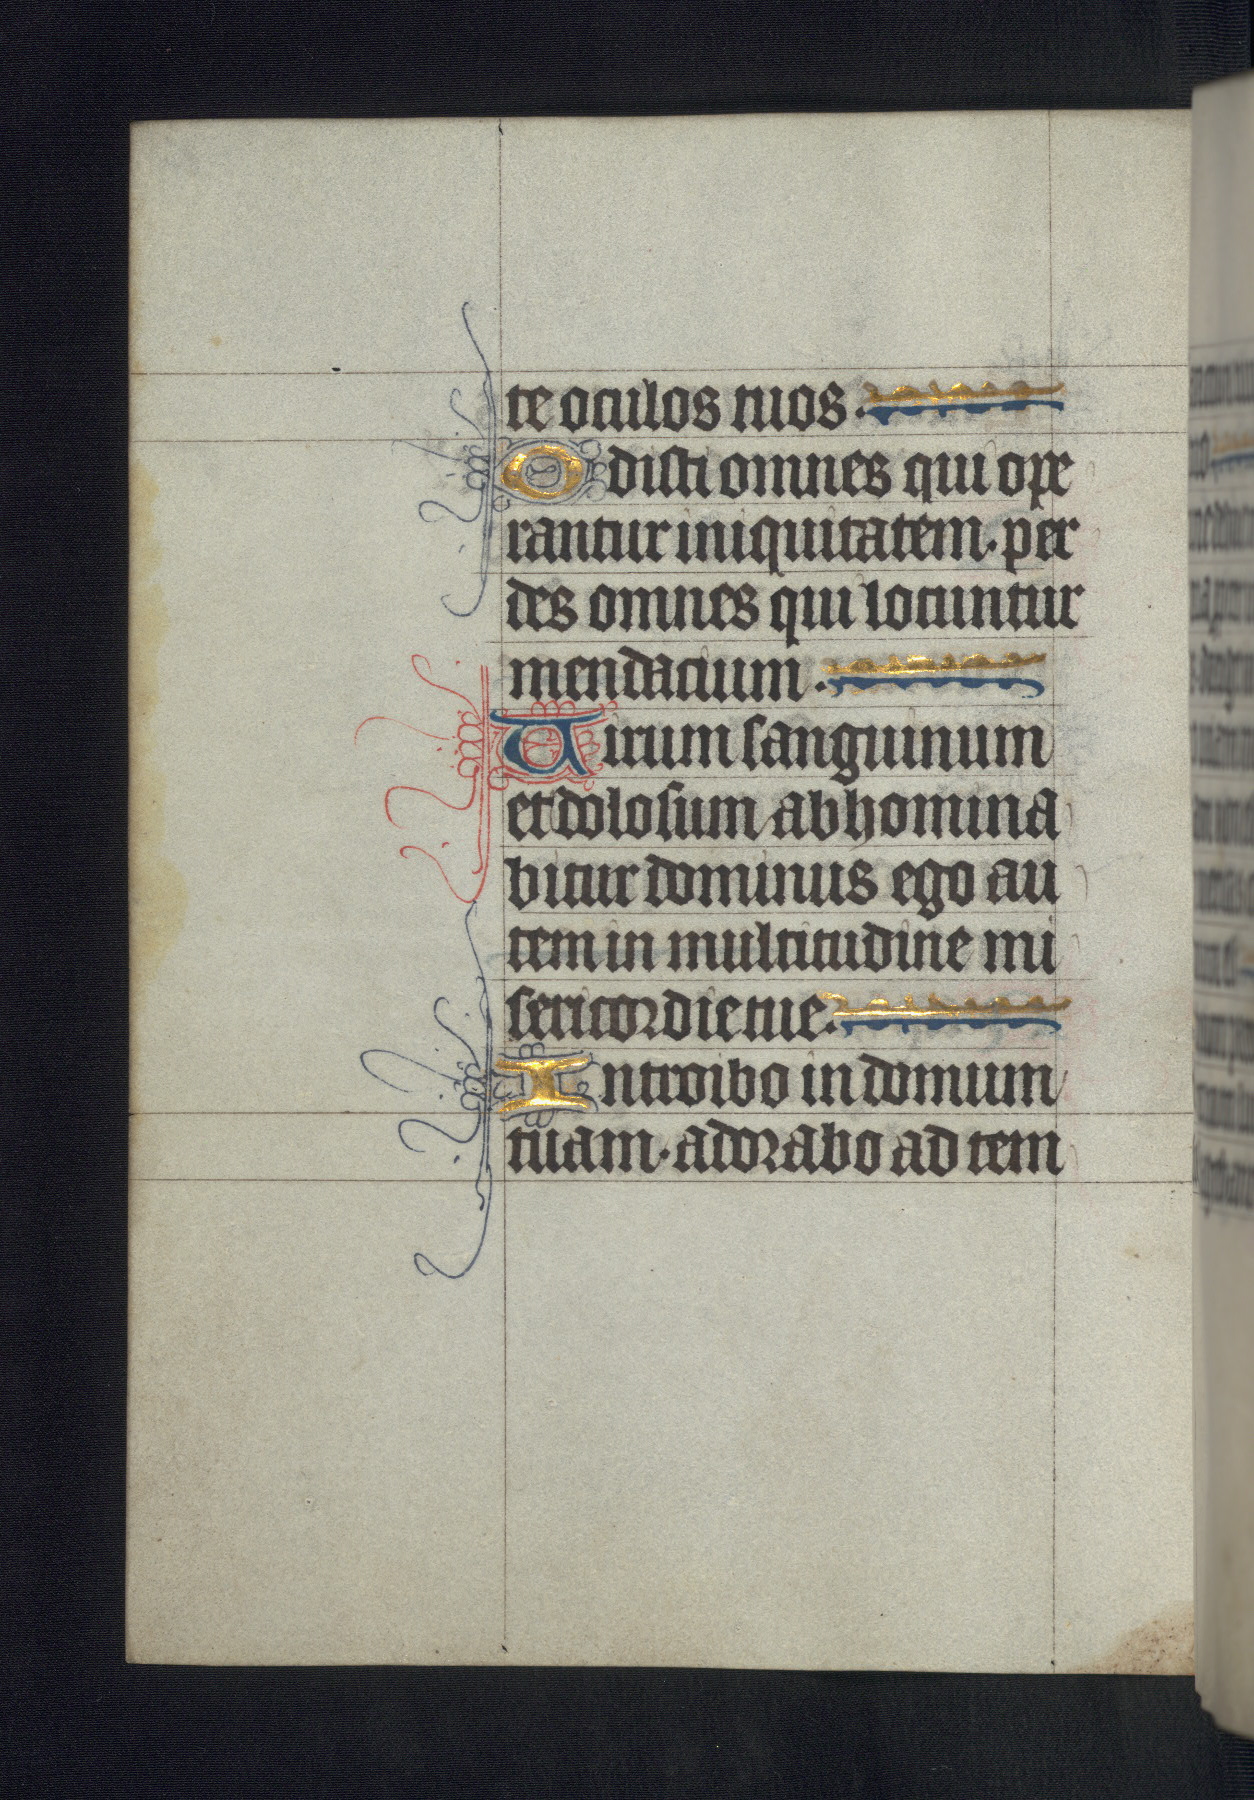 te oculos tuos.
Odisti omnes qui ope
rantur iniquitatem. per
des omnes qui locuntur
mendacium.
Uirum sanguinum
et dolosum abhomina
bitur dominus ego au
tem in multitudine mi
sericordie tue.
Introibo in domum
tuam. adorabo ad tem